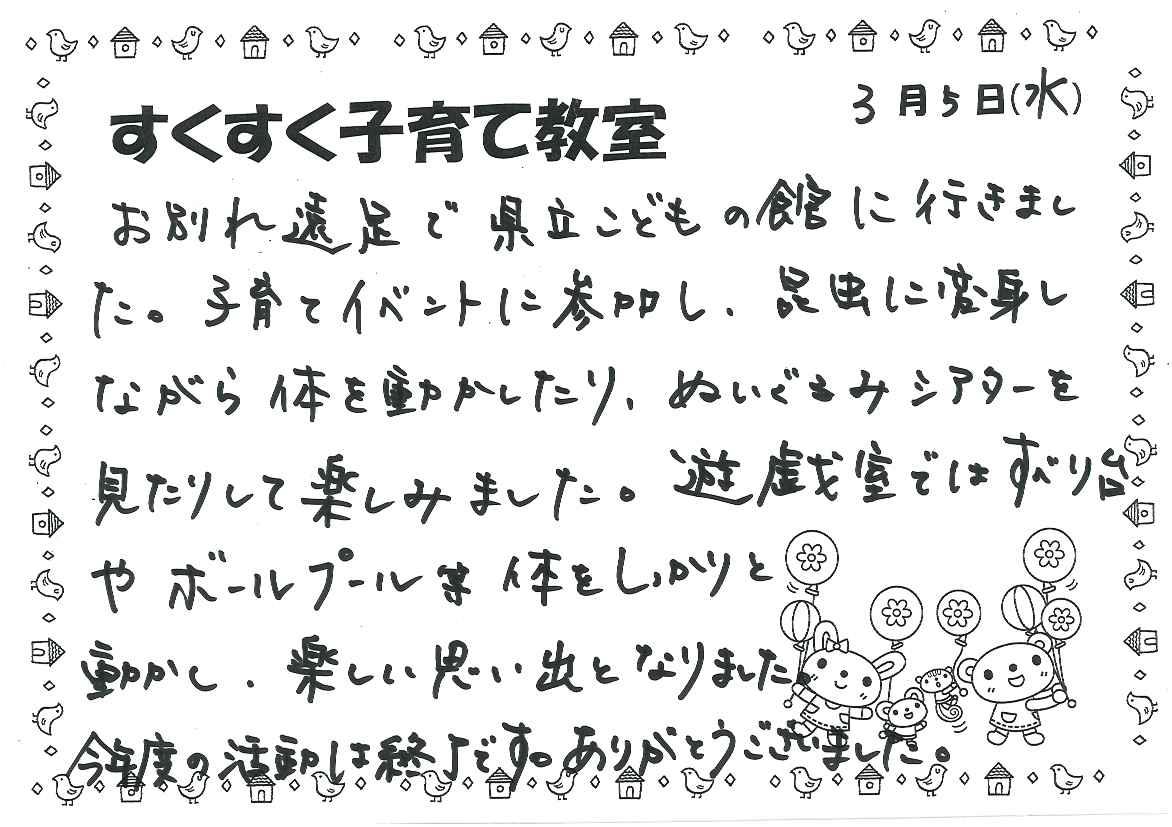 3月5日(水)
すくすく子育て教室
お別れ遠足で県立こどもの館に行きまし
た。子育てイベントに参加し、昆虫に変身し
ながら体を動かしたり、ぬいぐるみシアターを
見たりして楽しみました。遊戯室ではすべり台
やボールプール等体をしっかりと
動かし、楽しい思い出となりました。
今年度の活動は終了です。ありがとうございました。